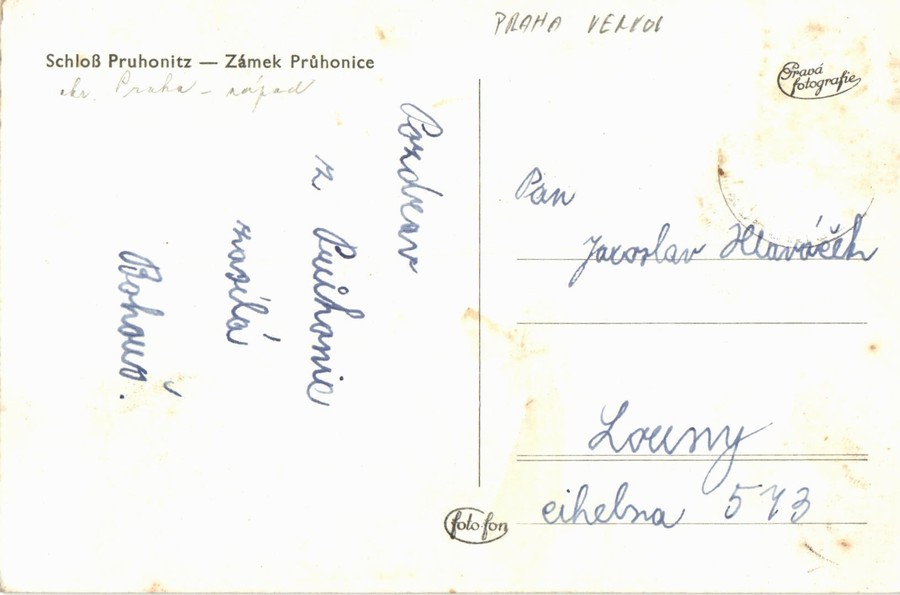 PRAHA VENKOV
Schloß Pruhonitz — Zámek Průhonice
okr. Praha - západ
Pravá
fotografie
Pozdrav
z Průhonic
zasílá
Bohouš.
Pan
Jaroslav Hlaváček
Louny
cihelna 573
foto-fon